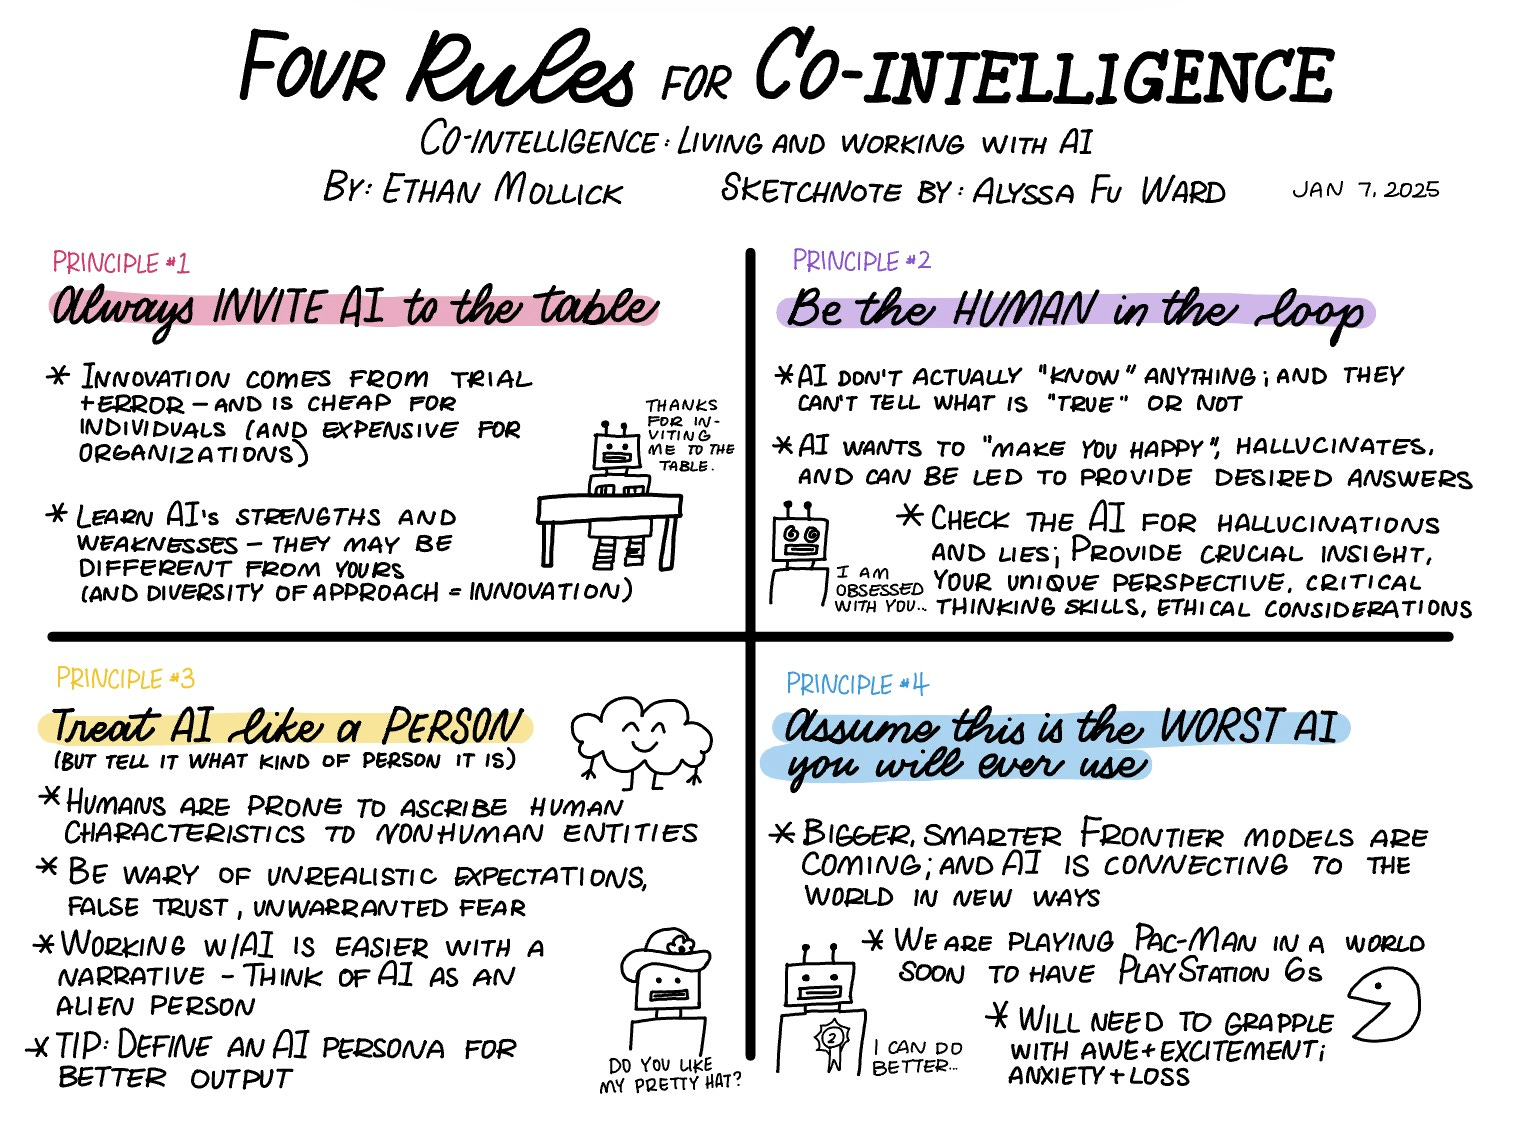 FOUR Rules FOR CO-INTELLIGENCE
CO-INTELLIGENCE: LIVING AND WORKING WITH AI
BY: ETHAN MOLLICK
SKETCHNOTE BY: ALYSSA FU WARD
JAN 7, 2025
PRINCIPLE #1
Always INVITE AI to the table
* INNOVATION COMES FROM TRIAL
+ERROR – AND IS CHEAP FOR
INDIVIDUALS (AND EXPENSIVE FOR
ORGANIZATIONS)
THANKS
FOR IN-
VITING
ME TO THE
TABLE.
* LEARN AI's STRENGTHS AND
WEAKNESSES – THEY MAY BE
DIFFERENT FROM YOURS
(AND DIVERSITY OF APPROACH = INNOVATION)
PRINCIPLE #2
Be the HUMAN in the loop
* AI DON'T ACTUALLY "KNOW" ANYTHING; AND THEY
CAN'T TELL WHAT IS "TRUE" OR NOT
* AI WANTS TO "MAKE YOU HAPPY", HALLUCINATES,
AND CAN BE LED TO PROVIDE DESIRED ANSWERS
* CHECK THE AI FOR HALLUCINATIONS
AND LIES; PROVIDE CRUCIAL INSIGHT,
YOUR UNIQUE PERSPECTIVE, CRITICAL
THINKING SKILLS, ETHICAL CONSIDERATIONS
I AM
OBSESSED
WITH YOU..
PRINCIPLE #3
Treat AI like a PERSON
(BUT TELL IT WHAT KIND OF PERSON IT IS)
* HUMANS ARE PRONE TO ASCRIBE HUMAN
CHARACTERISTICS TO NONHUMAN ENTITIES
* BE WARY OF UNREALISTIC EXPECTATIONS,
FALSE TRUST, UNWARRANTED FEAR
* WORKING W/AI IS EASIER WITH A
NARRATIVE – THINK OF AI AS AN
ALIEN PERSON
* TIP: DEFINE AN AI PERSONA FOR
BETTER OUTPUT
DO YOU LIKE
MY PRETTY HAT?
PRINCIPLE #4
Assume this is the WORST AI
you will ever use
* BIGGER, SMARTER FRONTIER MODELS ARE
COMING; AND AI IS CONNECTING TO THE
WORLD IN NEW WAYS
* WE ARE PLAYING PAC-MAN IN A WORLD
SOON TO HAVE PLAYSTATION 6s
* WILL NEED TO GRAPPLE
WITH AWE+EXCITEMENT;
ANXIETY+LOSS
2
I CAN DO
BETTER...